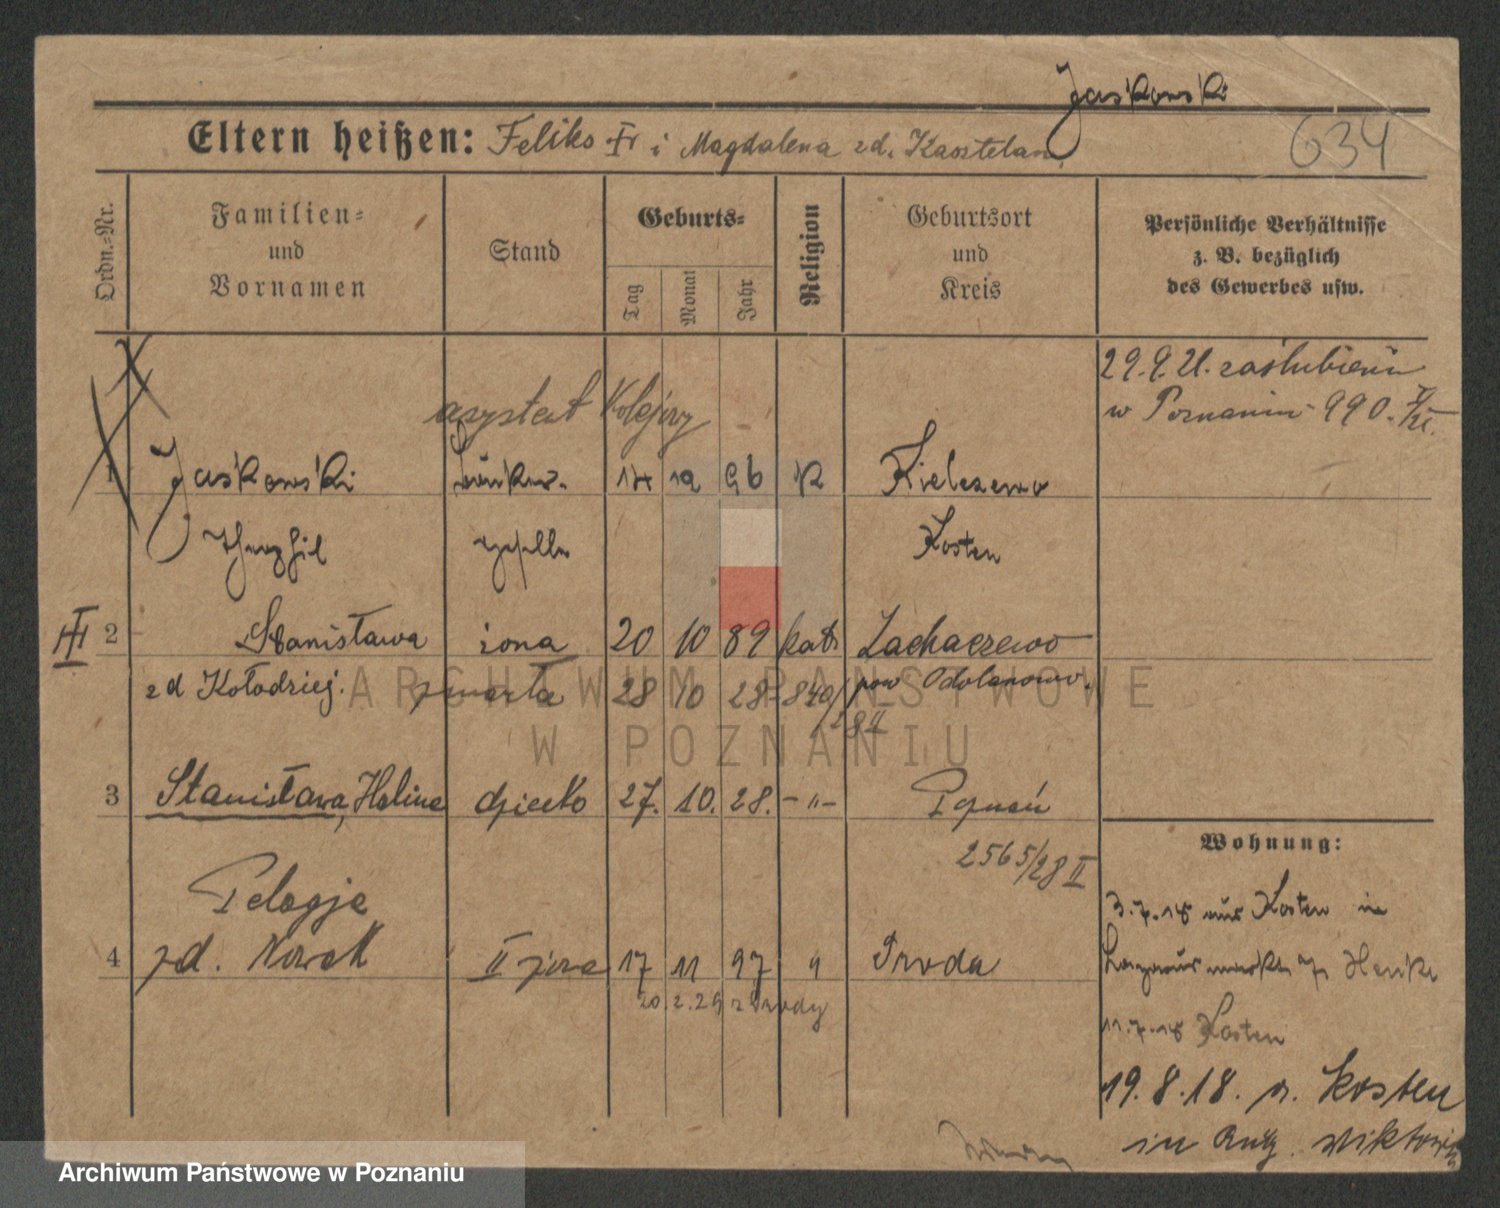 Jaskowski
Eltern heißen: Feliks i Magdalena zd. Kasztelan
634
Ordn.-Nr.
Familien-
und
Vornamen
Stand
Geburts-
Tag
Monat
Jahr
Religion
Geburtsort
und
Kreis
Persönliche Verhältnisse
z. B. bezüglich
des Gewerbes usw.
29.9.21. zaślubieni
w Poznaniu 990.
asystent Kolejowy
1 Jaskowski 14 12 96 K Kielczewo
Theophil Kosten
III 2 Stanisława żona 20 10 89 kat. Zacharzewo
zd Kołodziej. zmarła 28 10 28 - 840/ pow Odolanowo.
28 II
3 Stanisława, Halina dziecko 27. 10. 28. - " - Poznań
2565/28 II
Wohnung:
Pelagja
4 zd. Nowak II żona 17 11 97 " Środa
20.2.29 z Środy
3.7.18 aus Kosten in
11.7.18 Kosten
19.8.18. n. Kosten
in
ARCHIWUM PAŃSTWOWE
W POZNANIU
Archiwum Państwowe w Poznaniu